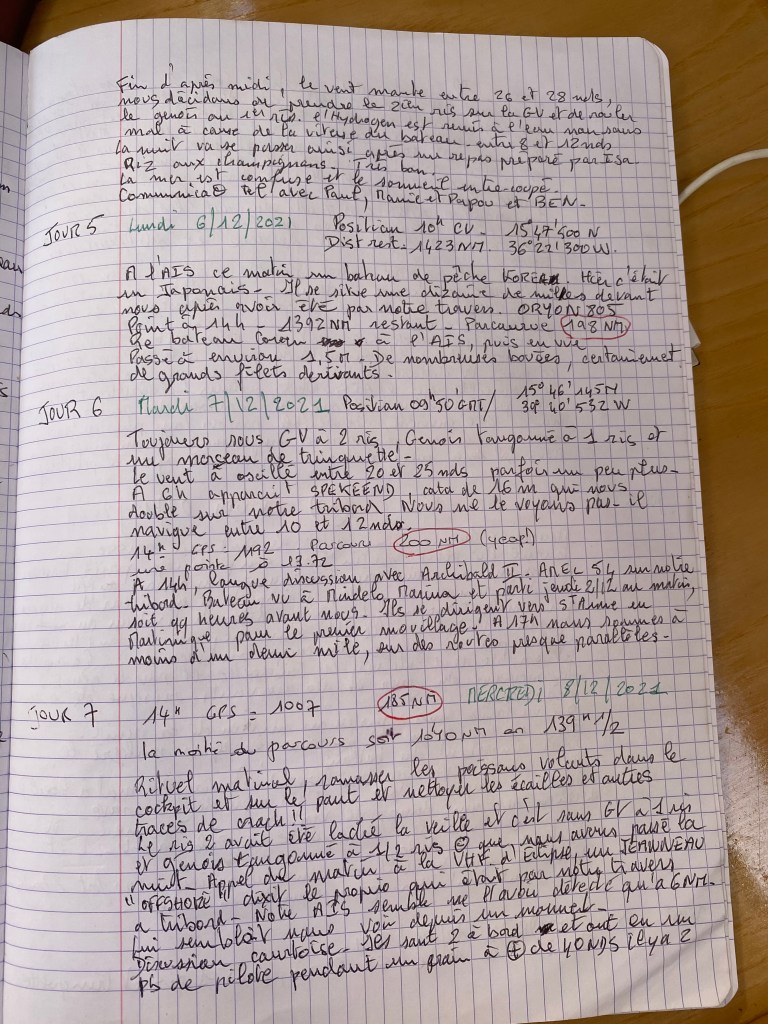 Fin d'après midi, le vent monte entre 26 et 28 nds,
nous décidons de prendre le 2ièm ris sur la GV et de rouler
le génois au 1er ris. l'Hydrogen est remis à l'eau non sans
mal à cause de la vitesse du bateau - entre 8 et 12 nds
La nuit va se passer ainsi, après un repas préparé par Isa
Riz aux champignons - Très bon.
La mer est confuse et le sommeil entre-coupé.
Communica⊕ Tel avec Paul, Mamie et Papou et BEN -
JOUR 5 Lundi 6/12/2021 Position 10h CU - 15°47'500 N
Dist rest - 1423 NM. 36°22'300 W.
A l'AIS ce matin, un bateau de pêche KOREAN. Hier c'était
un Japonais - Il se situe une dizaine de milles devant
nous après avoir été par notre travers. ORYON 805
Point à 14h - 1392 NM restant - Parcourue 198 NM
Le bateau à l'AIS, puis en vue.
Passé à environ 1,5M - De nombreuses bouées, certainement
de grands filets dérivants.
JOUR 6 Mardi 7/12/2021 Position 09h50 GMT/ 15° 46'145 N
39° 40'532 W
Toujours sous GV à 2 ris, Genois tangonné à 1 ris et
un morceau de trinquette -
Le vent à oscillé entre 20 et 25 nds parfois un peu plus -
A 6h apparait SPEKEEND, cata de 16 m qui nous
double sur notre tribord. Nous ne le voyons pas - il
navigue entre 10 et 12 nds.
14h GPS = 1192 Parcours 200 NM (yeap!)
une pointe à 13.72
A 14h, longue discussion avec Archibald II - AMEL 54 sur notre
tribord - Bateau vu à Mindelo Marina et parti jeudi 2/12 au matin,
soit 99 heures avant nous. Ils se dirigent vers St Anne en
Martinique pour le premier mouillage - A 17h nous sommes à
moins d'un demi mile, sur des routes presque parallèles -
JOUR 7 14h GPS = 1007 185 NM MERCREDI 8/12/2021
la moitié du parcours soit 1040 NM en 139h 1/2
Rituel matinal, ramasser les poissons volants dans le
cockpit et sur le pont et nettoyer les écailles et autres
traces de crach!!
Le ris 2 avait été laché la veille et c'est sous GV à 1 ris
et génois tangonné à 1/2 ris ⊖ que nous avons passé la
nuit - Appel du matin à la VHF d'Eclipse, un JEANNEAU
"OFFSHORE" dixit le proprio qui était par notre travers
à tribord - Notre AIS semble ne l'avoir détecté qu'à 6NM -
Lui semblait nous voir depuis un moment -
Discussion courtoise - Ils sont 2 à bord et ont eu un
pb de pilote pendant un grain à ⊕ de 40 NDS il y a 2